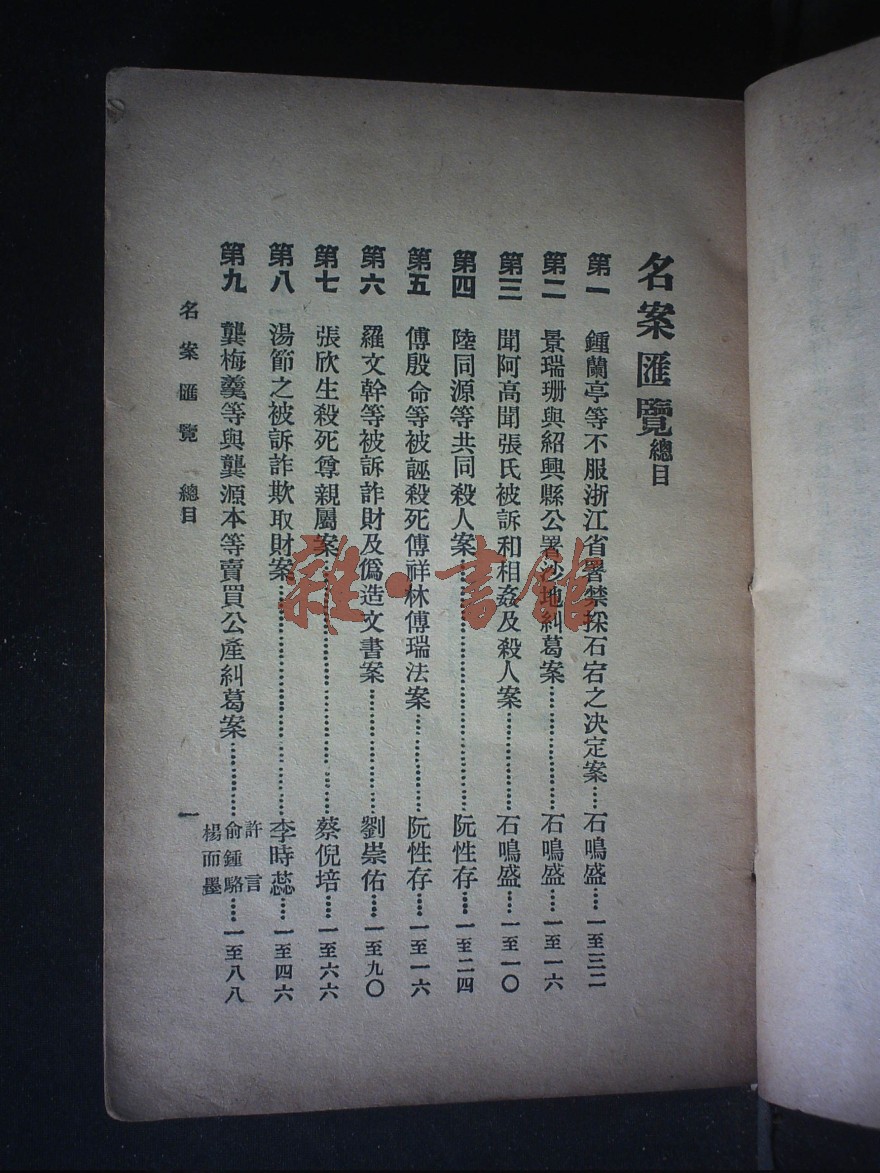 名案匯覽總目
第一 鍾蘭亭等不服浙江省署禁採石宕之決定案……石鳴盛……一至三二
第二 景瑞珊與紹興縣公署沙地糾葛案……石鳴盛……一至一六
第三 聞阿高聞張氏被訴和相姦及殺人案……石鳴盛……一至一〇
第四 陸同源等共同殺人案……阮性存……一至二四
第五 傅殷命等被誣殺死傅祥林傅瑞法案……阮性存……一至一六
第六 羅文幹等被訴詐財及僞造文書案……劉崇佑……一至九〇
第七 張欣生殺死尊親屬案……蔡倪培……一至六六
第八 湯節之被訴詐欺取財案……李時蕊……一至四六
第九 龔梅羹等與龔源本等賣買公產糾葛案……許言 俞鍾駱 楊而墨……一至八八
名案匯覽 總目 一
雜·書館